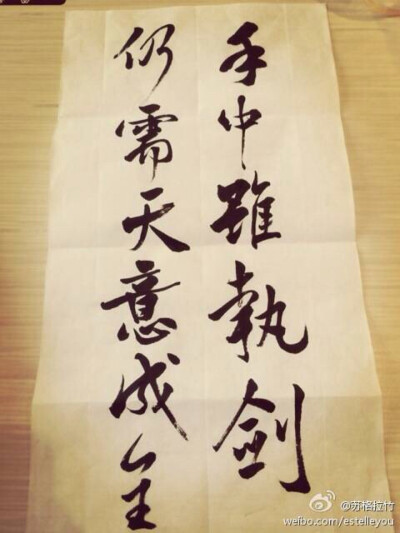 手中雖執劍
仍需天意成全
@苏格拉竹
weibo.com/estelleyou